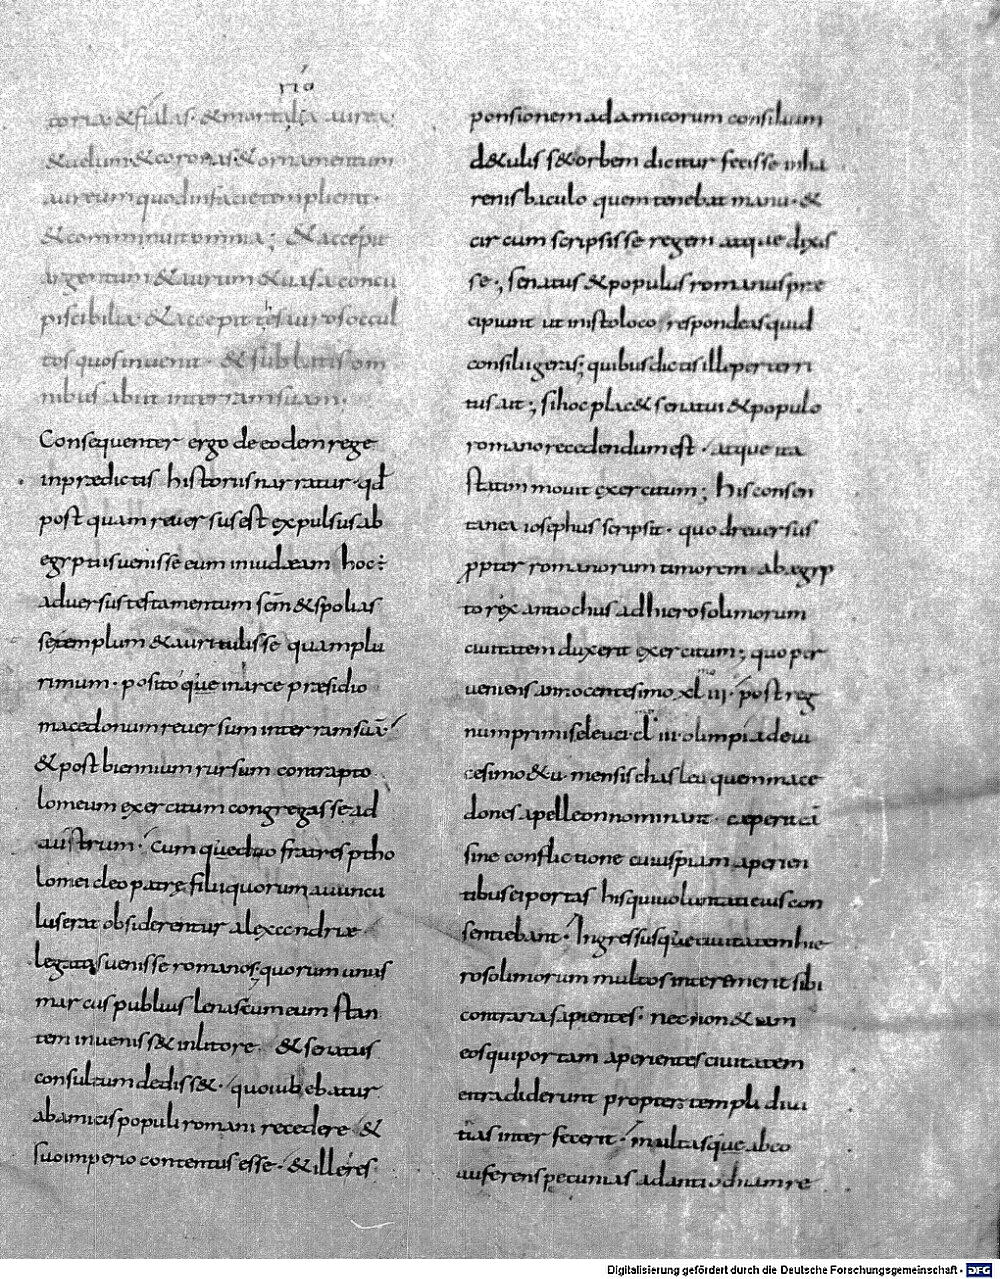 ria
toria & fialas · & mortariola aurea ·
& uelum · & coronas · & ornamentum
aureum quod infacie templi erat ·
& comminuit omnia ; & accepit
argentum & aurum & uasa concu
piscibilia · & accepit tesauros occul
tos quos inuenit · & sublatis om
nibus abiit interram suam ·
Consequenter ergo de eodem rege
inpraedictis historiis narratur · qd
post quam reuersus est expulsus ab
egyptiis uenisse eum in iudaeam hoc :
aduersus testamentum scm & spolias
se templum & auri tulisse quam plu
rimum · posito que inarce praesidio
macedonum reuersum interram suā
& post biennium rursum contra pto
lomeum exercitum congregasse ad
austrum · Cum que duo fratres ptho
lomei cleopatrę filii quorum auuncu
lus erat obsiderentur alexandriae
legatos uenisse romanos quorum unus
marcus publius lenas cum eum stan
tem inuenisset inlitore & senatus
consultum dedisset · quo iubebatur
ab amicis populi romani recedere &
suo imperio contentus esse · & ille res
ponsionem ad amicorum consilium
detulisset orbem dicitur fecisse inha
renis baculo quem tenebat manu · &
circum scripsisse regem atque dixis
se ; senatus & populus romanus prę
cipiunt ut inisto loco respondeas quid
consilii geras ; quibus dictis ille perterri
tus ait ; si hoc placet senatui & populo
romano recedendum est · atque ita
statim mouit exercitum ; his consen
tanea iosephus scripsit · quod reuersus
ppter romanorum timorem ab aegyp
to rex antiochus ad hierosolimorum
ciuitatem duxerit exercitum ; quo per
ueniens anno centesimo xl iii · post reg
num primi seleuci cl iii olimpiade ui
cesimo & u · mensis chasleu quem mace
dones apelleon nominant · ceperit eā
sine conflictione cuiuspiam aperien
tibus ei portas his qui uoluntati eius con
sentiebant · Ingressusque ciuitatem hie
rosolimorum multos interemerit sibi
contraria sapientes · nec non & eam
eos qui portam aperientes ciuitatem
ei tradiderunt propter templi diui
tias interfecerit · multasque abeo
auferens pecunias ad antiochiam re